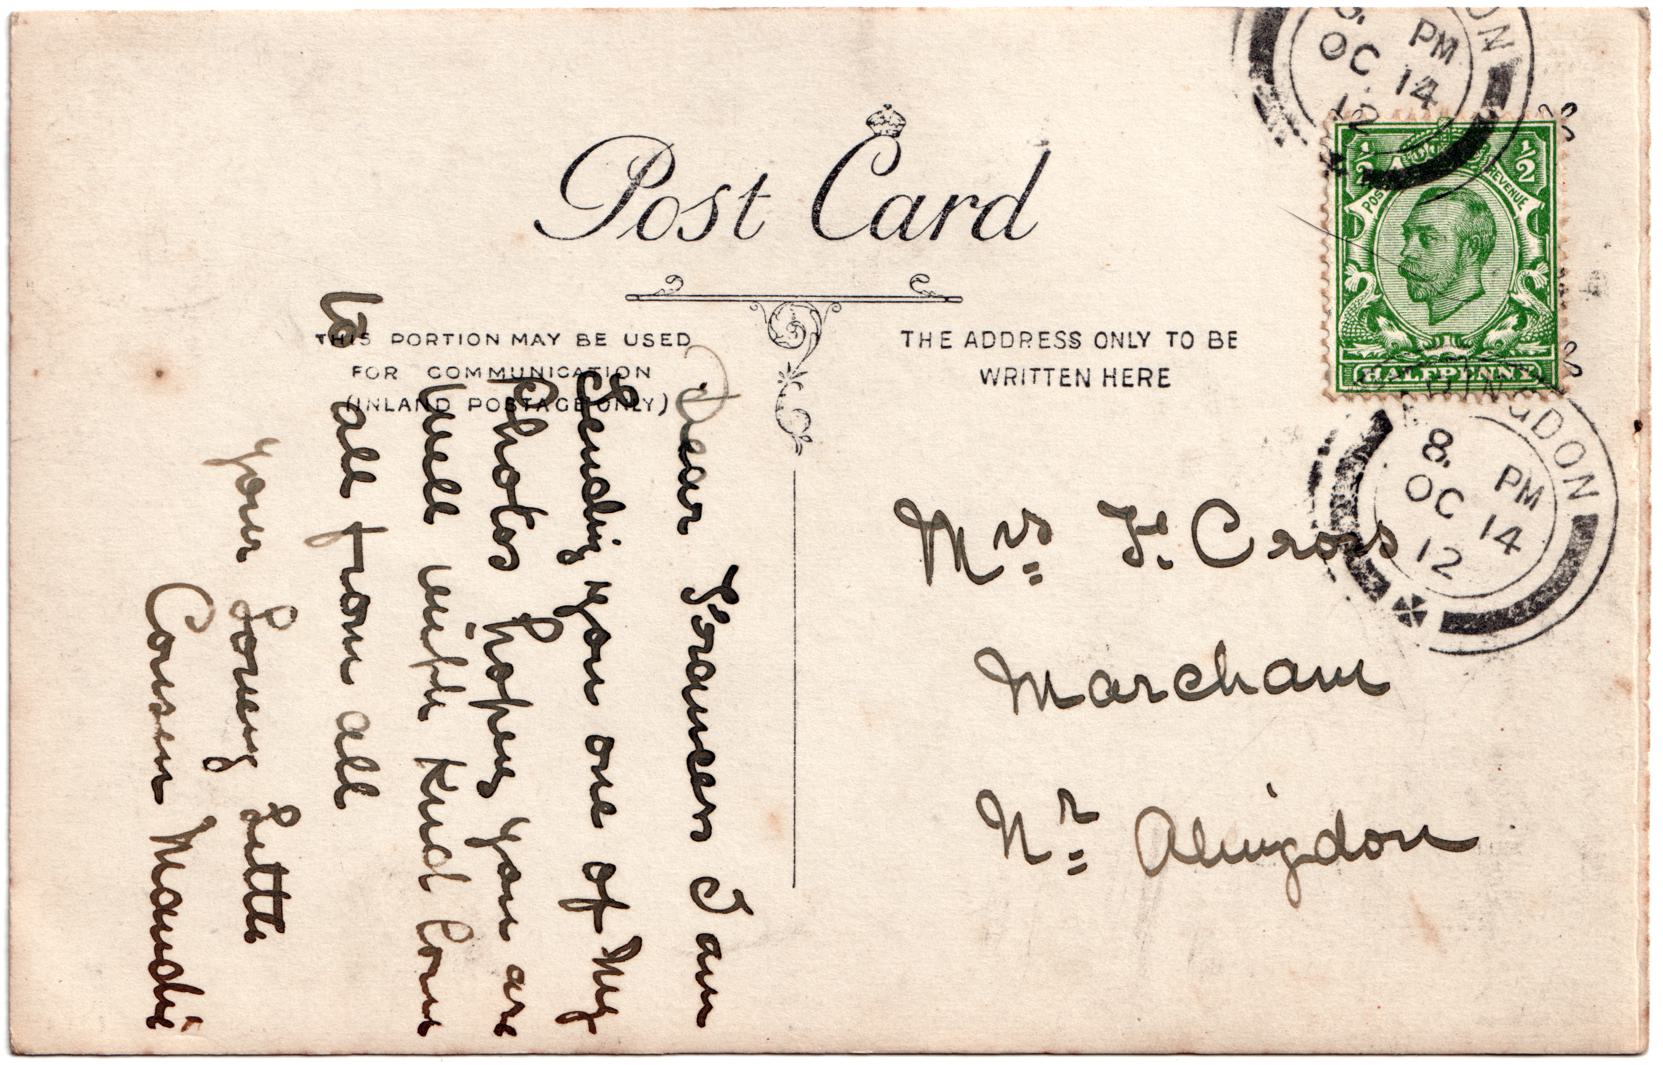 Post Card
THIS PORTION MAY BE USED
FOR COMMUNICATION
(INLAND POSTAGE ONLY)
THE ADDRESS ONLY TO BE
WRITTEN HERE
Dear Frances I am
Sending you one of My
Photos hoping you are
well with Kind Love
to all from all
your Loving Little
Cousin Maudie
Mrs F. Cross
Marcham
Nr Abingdon
8. PM
OC 14
12
ON
½ ½
POSTAGE REVENUE
HALFPENNY
NGDON
8. PM
OC 14
12